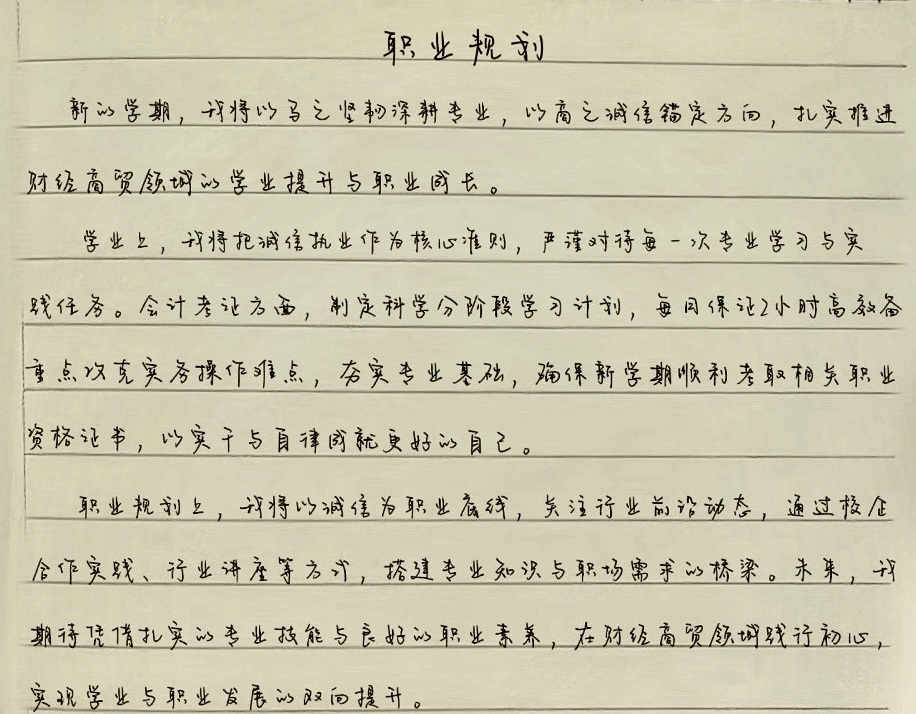 职业规划
新的学期，我将以马之坚韧深耕专业，以商之诚信锚定方向，扎实推进
财经商贸领域的学业提升与职业成长。
学业上，我将把诚信执业作为核心准则，严谨对待每一次专业学习与实
践任务。会计考证方面，制定科学分阶段学习计划，每日保证2小时高效备
重点攻克实务操作难点，夯实专业基础，确保新学期顺利考取相关职业
资格证书，以实干与自律成就更好的自己。
职业规划上，我将以诚信为职业底线，关注行业前沿动态，通过校企
合作实践、行业讲座等方式，搭建专业知识与职场需求的桥梁。未来，我
期待凭借扎实的专业技能与良好的职业素养，在财经商贸领域践行初心，
实现学业与职业发展的双向提升。